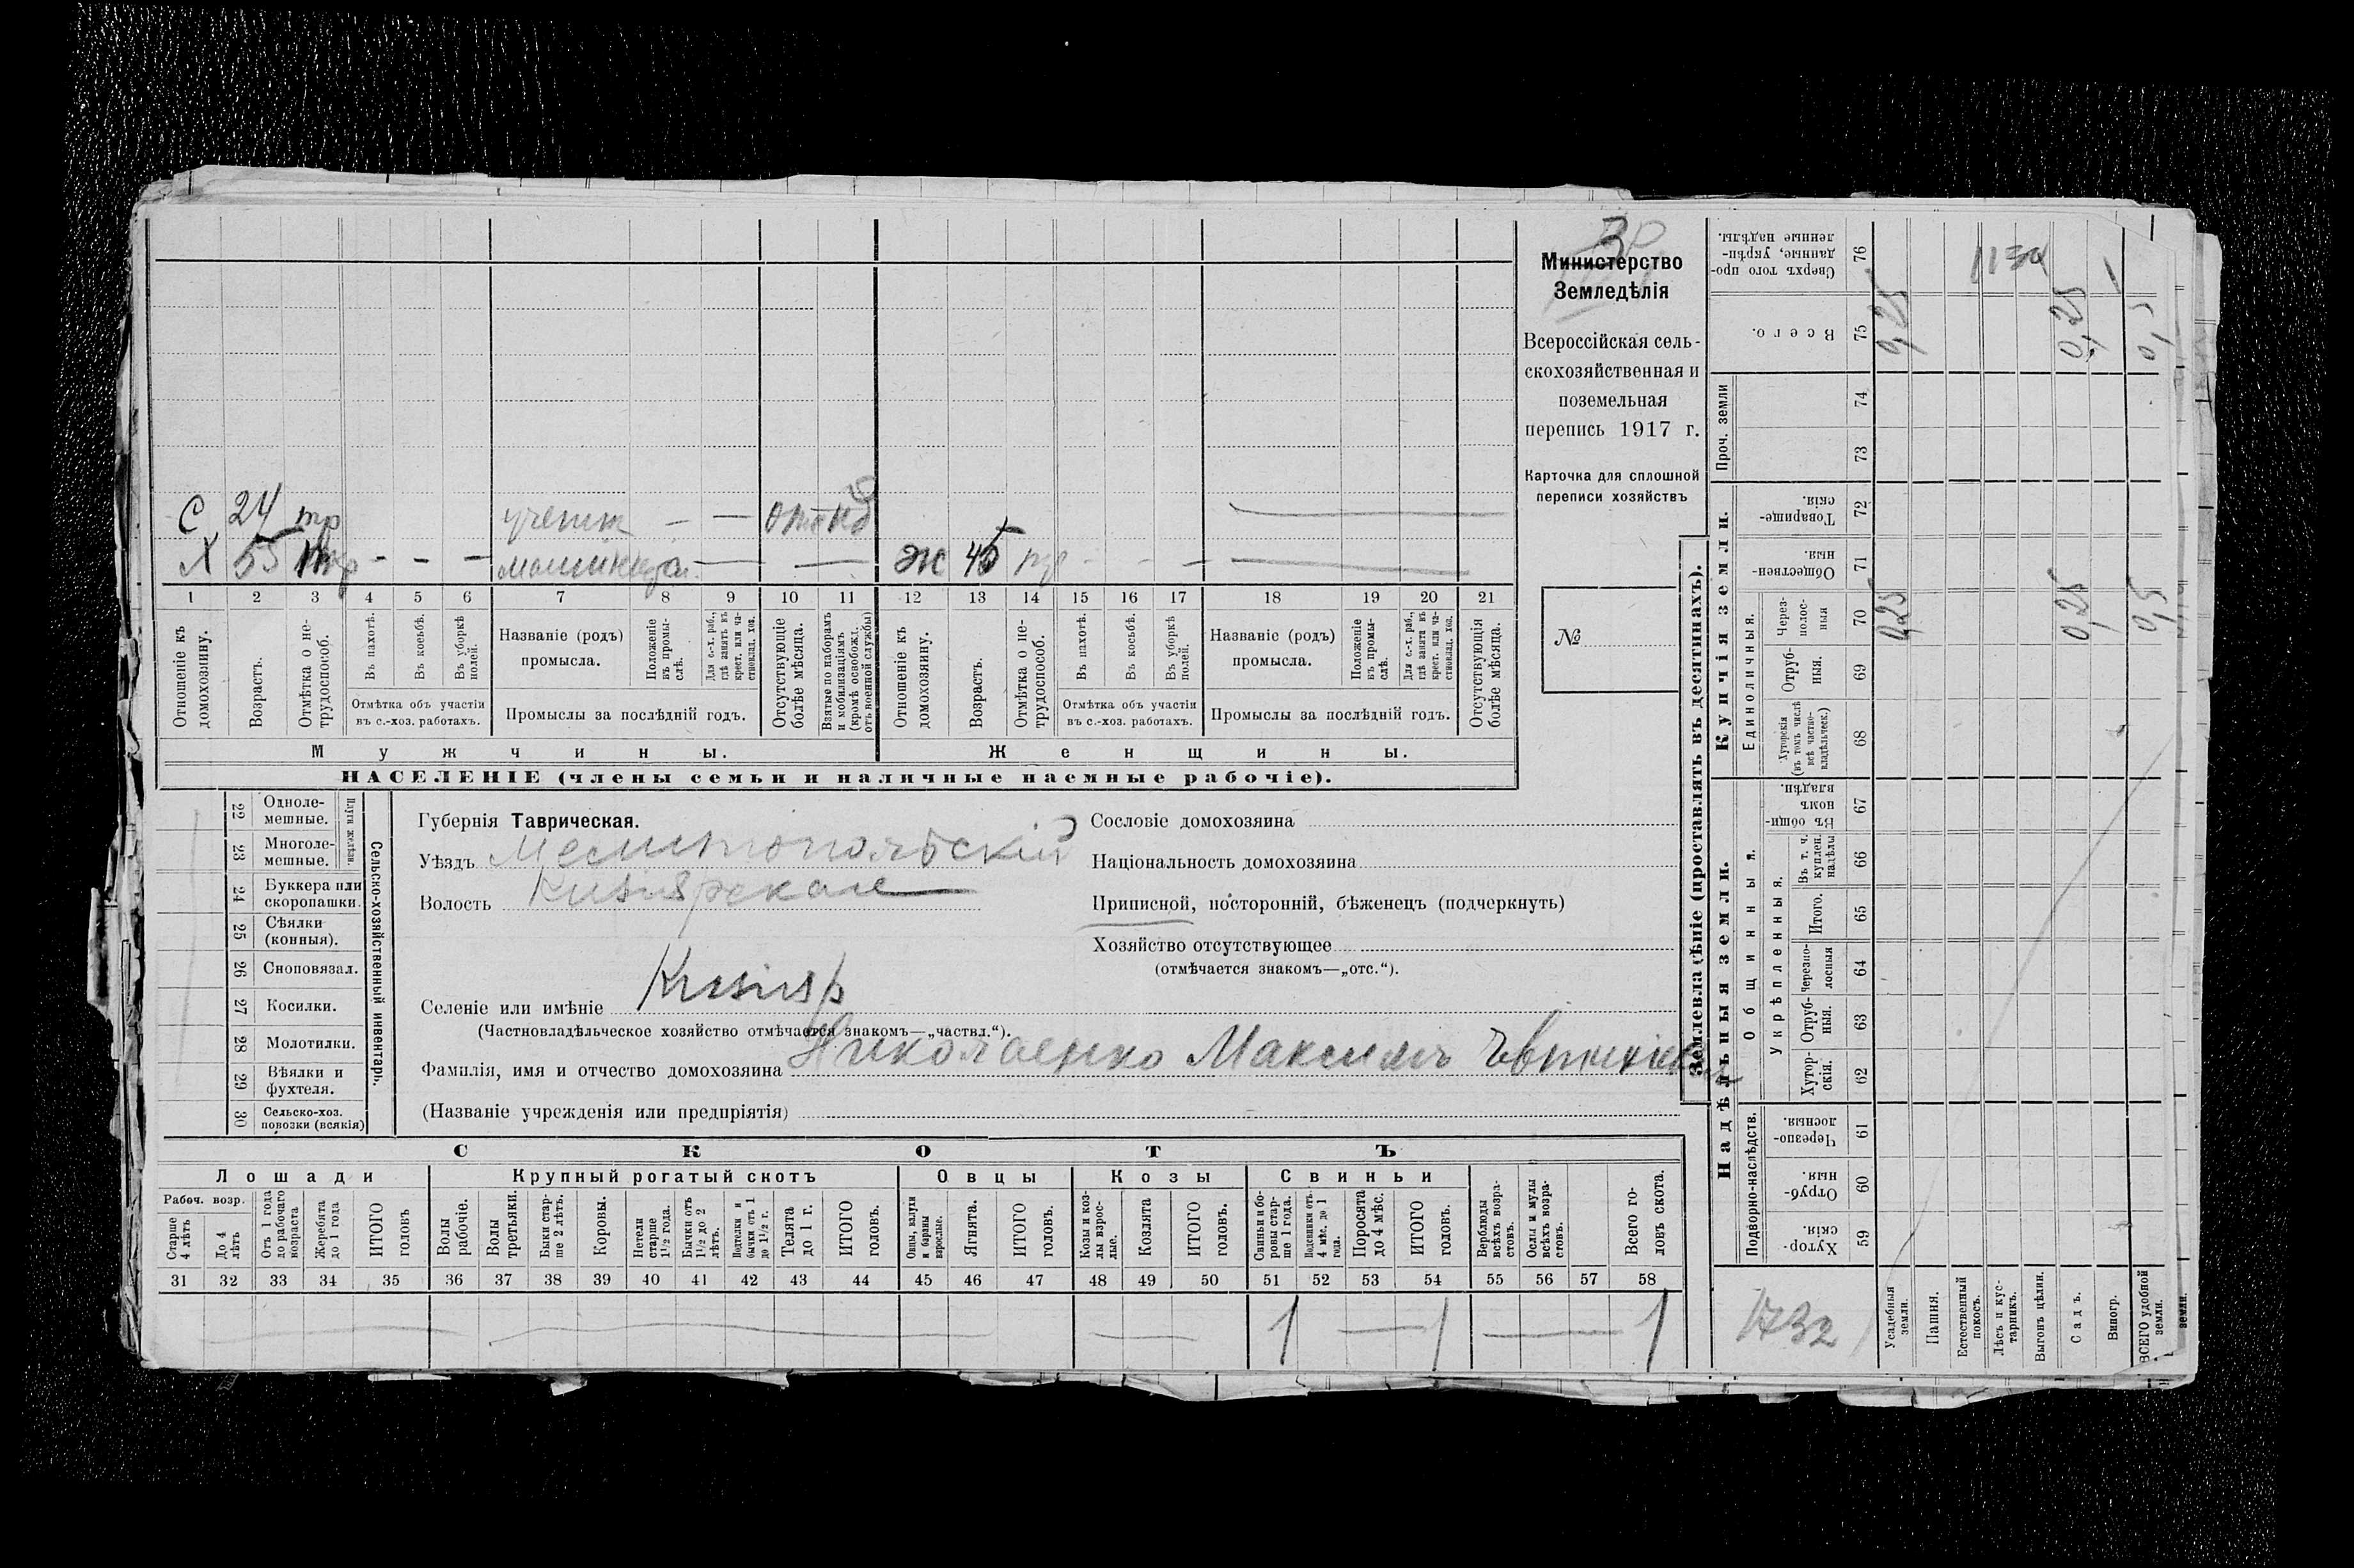 Министерство
Земледѣлія
Всероссійская сель-
скохозяйственная и
поземельная
перепись 1917 г.
Карточка для сплошной
переписи хозяйствъ
№
С 24 тр — — отс
Х 55 тр - - - — — Ж 45 тр - - -
1 2 3 4 5 6 7 8 9 10 11 12 13 14 15 16 17 18 19 20 21
Отношеніе къ домохозяину.
Возрастъ.
Отмѣтка о не-трудоспособ.
Въ пахотѣ.
Въ косьбѣ.
Въ уборкѣ полей.
Отмѣтка объ участіи
въ с.-хоз. работахъ.
Названіе (родъ)
промысла.
Положеніе въ промы-слѣ.
Для с.-х. раб., гдѣ занятъ въ крест. или ча-стновлад. хоз.
Промыслы за послѣдній годъ.
Отсутствующіе болѣе мѣсяца.
Взятые по наборамъ и мобилизаціямъ (кромѣ освобожд. отъ военной службы)
Отношеніе къ домохозяину.
Возрастъ.
Отмѣтка о не-трудоспособ.
Въ пахотѣ.
Въ косьбѣ.
Въ уборкѣ полей.
Отмѣтка объ участіи
въ с.-хоз. работахъ.
Названіе (родъ)
промысла.
Положеніе въ промы-слѣ.
Для с.-х. раб., гдѣ занята въ крест. или ча-стновлад. хоз.
Промыслы за послѣдній годъ.
Отсутствующія болѣе мѣсяца.
Мужчины.
Женщины.
НАСЕЛЕНІЕ (члены семьи и наличные наемные рабочіе).
22 Одноле-мешные.
23 Многоле-мешные.
Плуги желѣзн.
24 Буккера или скоропашки.
25 Сѣялки (конныя).
26 Сноповязал.
27 Косилки.
28 Молотилки.
29 Вѣялки и фухтеля.
30 Сельско-хоз. повозки (всякія)
Сельско-хозяйственный инвентарь.
Губернія Таврическая.
Уѣздъ Мелитопольскій
Волость Кизіярская
Селеніе или имѣніе Кизіяр
(Частновладѣльческое хозяйство отмѣчается знакомъ—„частвл.“).
Фамилія, имя и отчество домохозяина Николаенко Максимъ
(Названіе учрежденія или предпріятія)
Сословіе домохозяина
Національность домохозяина
Приписной, посторонній, бѣженецъ (подчеркнуть)
Хозяйство отсутствующее
(отмѣчается знакомъ—„отс.“).
СКОТЪ
Лошади
Крупный рогатый скотъ
Овцы
Козы
Свиньи
Рабоч. возр.
Старше 4 лѣтъ
До 4 лѣтъ
Отъ 1 года до рабочаго возраста
Жеребята до 1 года
ИТОГО головъ
Волы рабочіе.
Волы третьяки.
Быки стар-ше 2 лѣтъ.
Коровы.
Нетели старше 1½ года.
Бычки отъ 1½ до 2 лѣтъ.
Подтелки и бычки отъ 1 до 1½ г.
Телята до 1 г.
ИТОГО головъ.
Овцы, валухи и бараны взрослые.
Ягнята.
ИТОГО головъ.
Козы и коз-лы взрос-лые.
Козлята
ИТОГО головъ.
Свиньи и бо-ровы стар-ше 1 года.
Подсвинки отъ 4 мѣс. до 1 года.
Поросята до 4 мѣс.
ИТОГО головъ.
Верблюды всѣхъ возра-стовъ.
Ослы и мулы всѣхъ возра-стовъ.
Всего го-ловъ скота.
31 32 33 34 35 36 37 38 39 40 41 42 43 44 45 46 47 48 49 50 51 52 53 54 55 56 57 58
1 — 1 — 1
Землевладѣніе (проставлять въ десятинахъ).
Купчія земли.
Надѣльныя земли.
Проч. земли
Единоличныя.
Общинныя.
Укрѣпленныя.
Подворно-наслѣдств.
76 Сверхъ того про-данные, укрѣп-ленные надѣлы.
75 Всего.
74
73
72 Товарище-скія.
71 Обществен-ныя.
70 Через-полос-ныя
69 Отруб-ныя.
68 Хуторскія (въ томъ числѣ всѣ частно-владѣльческ.)
67 Въ общин-номъ владѣн.
66 Въ т. ч. куплен. надѣлы
65 Итого.
64 Черезпо-лосныя
63 Отруб-ныя.
62 Хутор-скія.
61 Черезпо-лосныя.
60 Отруб-ныя.
59 Хутор-скія.
1732
Усадебныя земли. 0,25 0,25
Пашня.
Естественный покосъ.
Лѣсъ и кус-тарникъ.
Выгонъ цѣлин.
Садъ. 0,25 0,25
Виногр.
ВСЕГО удобной земли. 0,5 0,5
земли.